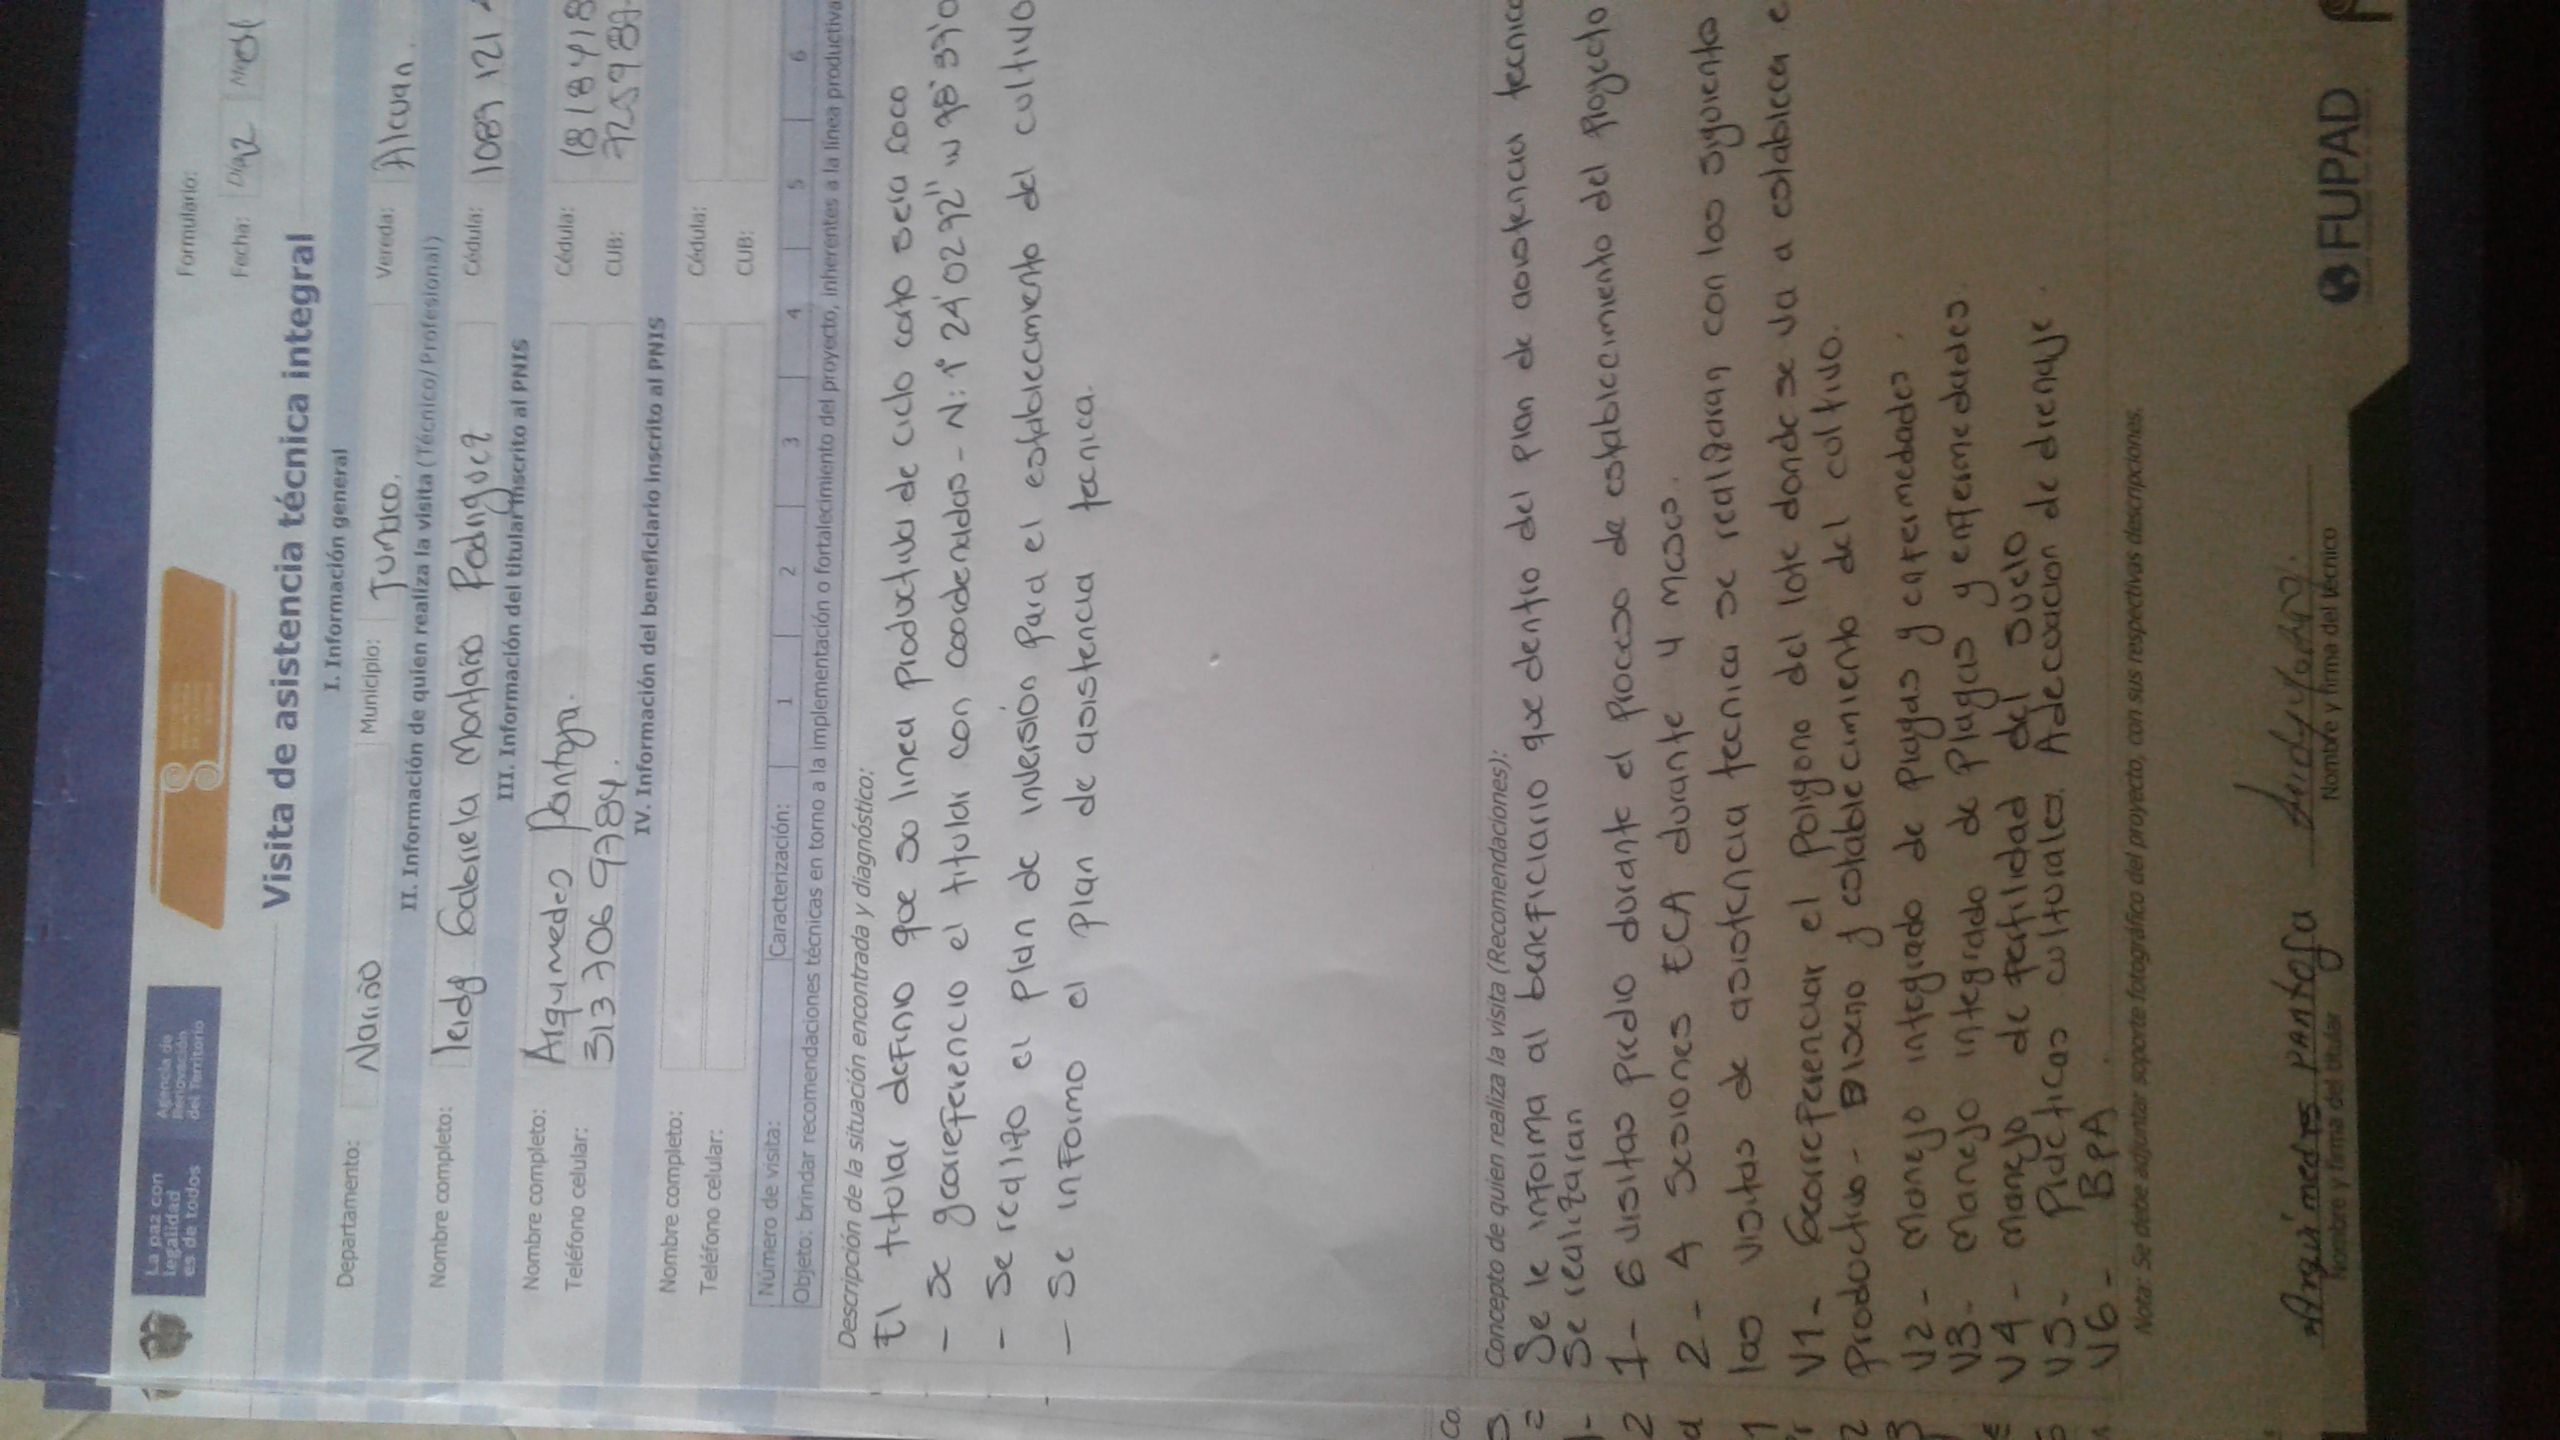 La paz con
legalidad
es de todos
Agencia de
Renovación
del Territorio
Formulario:
Fecha: Día2
Visita de asistencia técnica integral
I. Información general
Departamento: Nariño Municipio: Tumaco. Vereda: Alcuan.
II. Información de quien realiza la visita (Técnico/Profesional)
Nombre completo: leidy Gabriela Montaño Rodriguez Cédula: 1089 121
III. Información del titular inscrito al PNIS
Nombre completo: Arquimedes Pantoja. Cédula: 1818418
Teléfono celular: 313 706 9784. CUB:
IV. Información del beneficiario inscrito al PNIS
Nombre completo: Cédula:
Teléfono celular: CUB:
Número de visita: Caracterización: 1 2 3 4 5 6
Objeto: brindar recomendaciones técnicas en torno a la implementación o fortalecimiento del proyecto, inherentes a la línea productiva
Descripción de la situación encontrada y diagnóstico:
El titular definio que so linea productiva de ciclo corto sera coco
- se georeferencio el titular con coordenadas - N: 1° 24' 02 92" W 78° 39'
- Se realizo el plan de inversion para el establecimiento del cultivo
- Se informo el plan de asistencia tecnica.
Concepto de quien realiza la visita (Recomendaciones):
Se le informa al beneficiario que dentro del plan de asistencia tecnica
Se realizaran
1- 6 visitas predio durante el proceso de establecimiento del proyecto
2- 4 sesiones ECA durante 4 mases.
las visitas de asistencia tecnica se realizaran con los siguiento
V1- Georreferenciar el Poligono del lote donde se va a establecer e
Productivo - Diseno y establecimiento del cultivo.
V2- Manejo integrado de Plagas y enfermedades.
V3- Manejo integrado de Plagas y enfermedades.
V4- Manejo de fertilidad del suelo
V5- Practicas culturales. Adecuacion de drenaje.
V6- BPA
Nota: Se debe adjuntar soporte fotográfico del proyecto, con sus respectivas descripciones.
Arquimedes PANtoja
Nombre y firma del titular
Nombre y firma del técnico
FUPAD